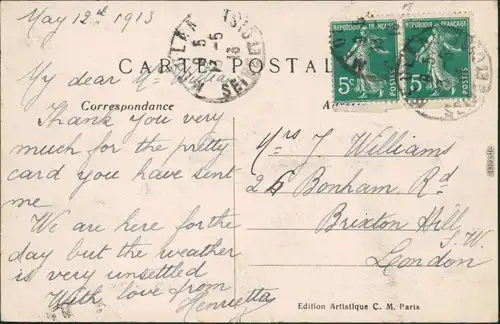 May 12th 1913
CARTE POSTALE
REPUBLIQUE FRANÇAISE
5c POSTES
REPUBLIQUE FRANÇAISE
5c POSTES
My dear Mrs Williams
Correspondance
Thank you very
much for the pretty
card you have sent
me
We are here for the
day but the weather
is very unsettled
With love from
Henrietta
Mrs J Williams
24 Bonham Rd
Brixton Hill
S.W.
London
Edition Artistique C. M. Paris